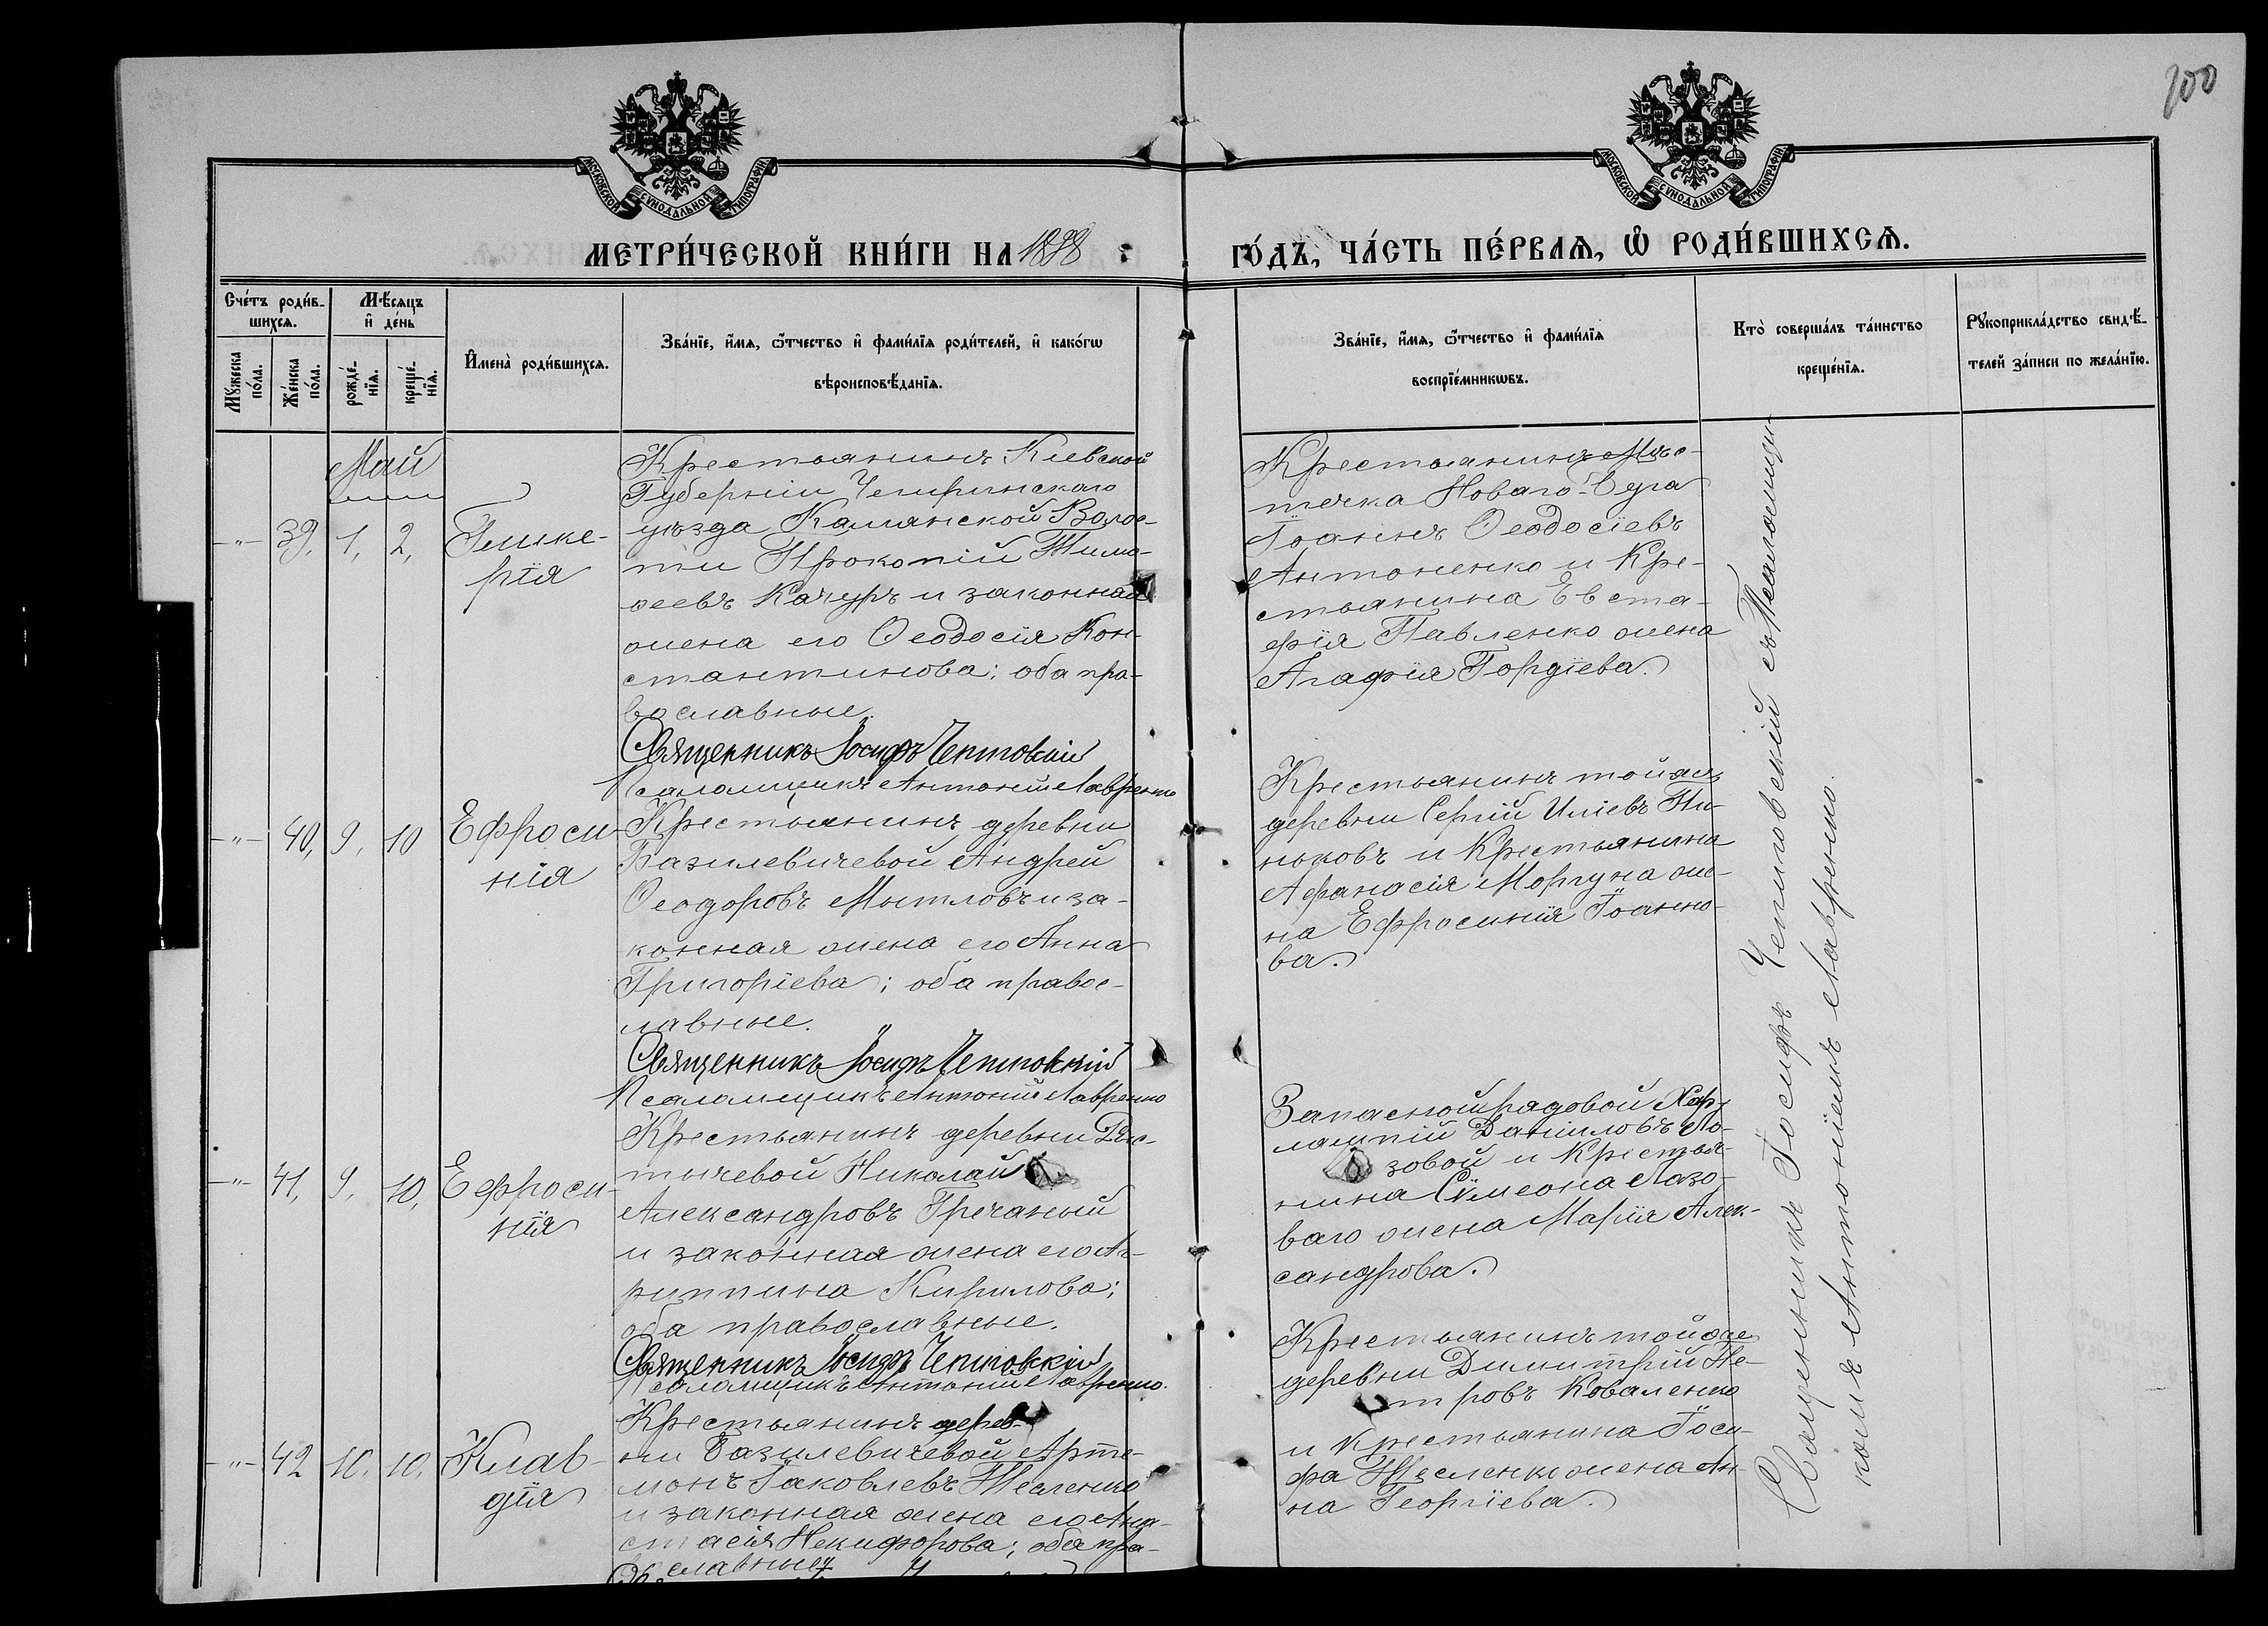 200
МОСКОВСКОЙ СѴНОДАЛЬНОЙ ТИПОГРАФІИ
МОСКОВСКОЙ СѴНОДАЛЬНОЙ ТИПОГРАФІИ
МЕТРИ́ЧЕСКОЙ КНИ́ГИ НА 1898
ГО́ДЪ, ЧА́СТЬ ПЕ́РВАѦ, Ѡ҆ РОДИ́ВШИХСѦ.
Сче́тъ роди́в-
шихсѧ.
Мѣ́сѧцъ
и҆ де́нь
Мꙋ́жеска
по́ла.
Же́нска
по́ла.
рожде́-
нїѧ.
креще́-
нїѧ.
И҆мена̀ роди́вшихсѧ.
Зва́нїе, и҆́мѧ, ѻ҆́тчество и҆ фами́лїѧ роди́телей, и҆ како́гѡ
вѣроисповѣ́данїѧ.
Зва́нїе, и҆́мѧ, ѻ҆́тчество и҆ фами́лїѧ
воспрїе́мникѡвъ.
Кто̀ соверша́лъ та́инство
креще́нїѧ.
Рꙋкоприкла́дство свидѣ́-
телей за́писи по жела́нїю.
Май
-"- 39, 1, 2,
Глике-
рія
Крестьянинъ Кіевской
Губерніи Чигиринскаго
уѣзда Камянской Волос-
ти Прокопій Тимо-
ѳеевъ Качуръ и законная
жена его Ѳеодосія Кон-
стантинова; оба пра-
вославные.
Священникъ Іосифъ Чепковскій
Псаломщикъ Антоній Лавренко
Крестьянинъ Мѣс-
течка Новаго-Буга
Іоаннъ Ѳеодосіевъ
Антоненко и Кре-
стьянина Евста-
фія Павленко жена
Агафія Гордіева.
-"- 40, 9, 10
Ефроси-
нія
Крестьянинъ деревни
Базилевичевой Андрей
Ѳеодоровъ и за-
конная жена его Анна
Григоріева; оба правос-
лавные.
Священникъ Іосифъ Чепковскій
Псаломщикъ Антоній Лавренко
Крестьянинъ той же
деревни Сергій Иліевъ
и Крестьянина
Афанасія Моргуна же-
на Ефросинія Іоанно-
ва.
-"- 41, 9, 10,
Ефроси-
нія
Крестьянинъ деревни
Николай
Александровъ Гречаный
и законная жена его Аг-
риппина Кирилова;
оба православные.
Священникъ Іосифъ Чепковскій
Псаломщикъ Антоній Лавренко.
Запасной рядовой Хар-
лампій Даніиловъ Ло-
зовой и Крестья-
нина Сѵмеона Лазо-
ваго жена Марія Алек-
сандрова.
-"- 42 10, 10,
Клав-
дія
Крестьянинъ дерев-
ни Базилевичевой Арте-
монъ Іаковлевъ Тесленко
и законная жена его Ана-
стасія Никифорова; оба пра-
вославные
Крестьянинъ той же
деревни Димитрій Пе-
тровъ Коваленко
и крестьянина Іоси-
фа Тесленко жена Ан-
на Георгіева.
Священникъ Іосифъ Чепковскій съ Псаломщи-
комъ Антоніемъ Лавренко.